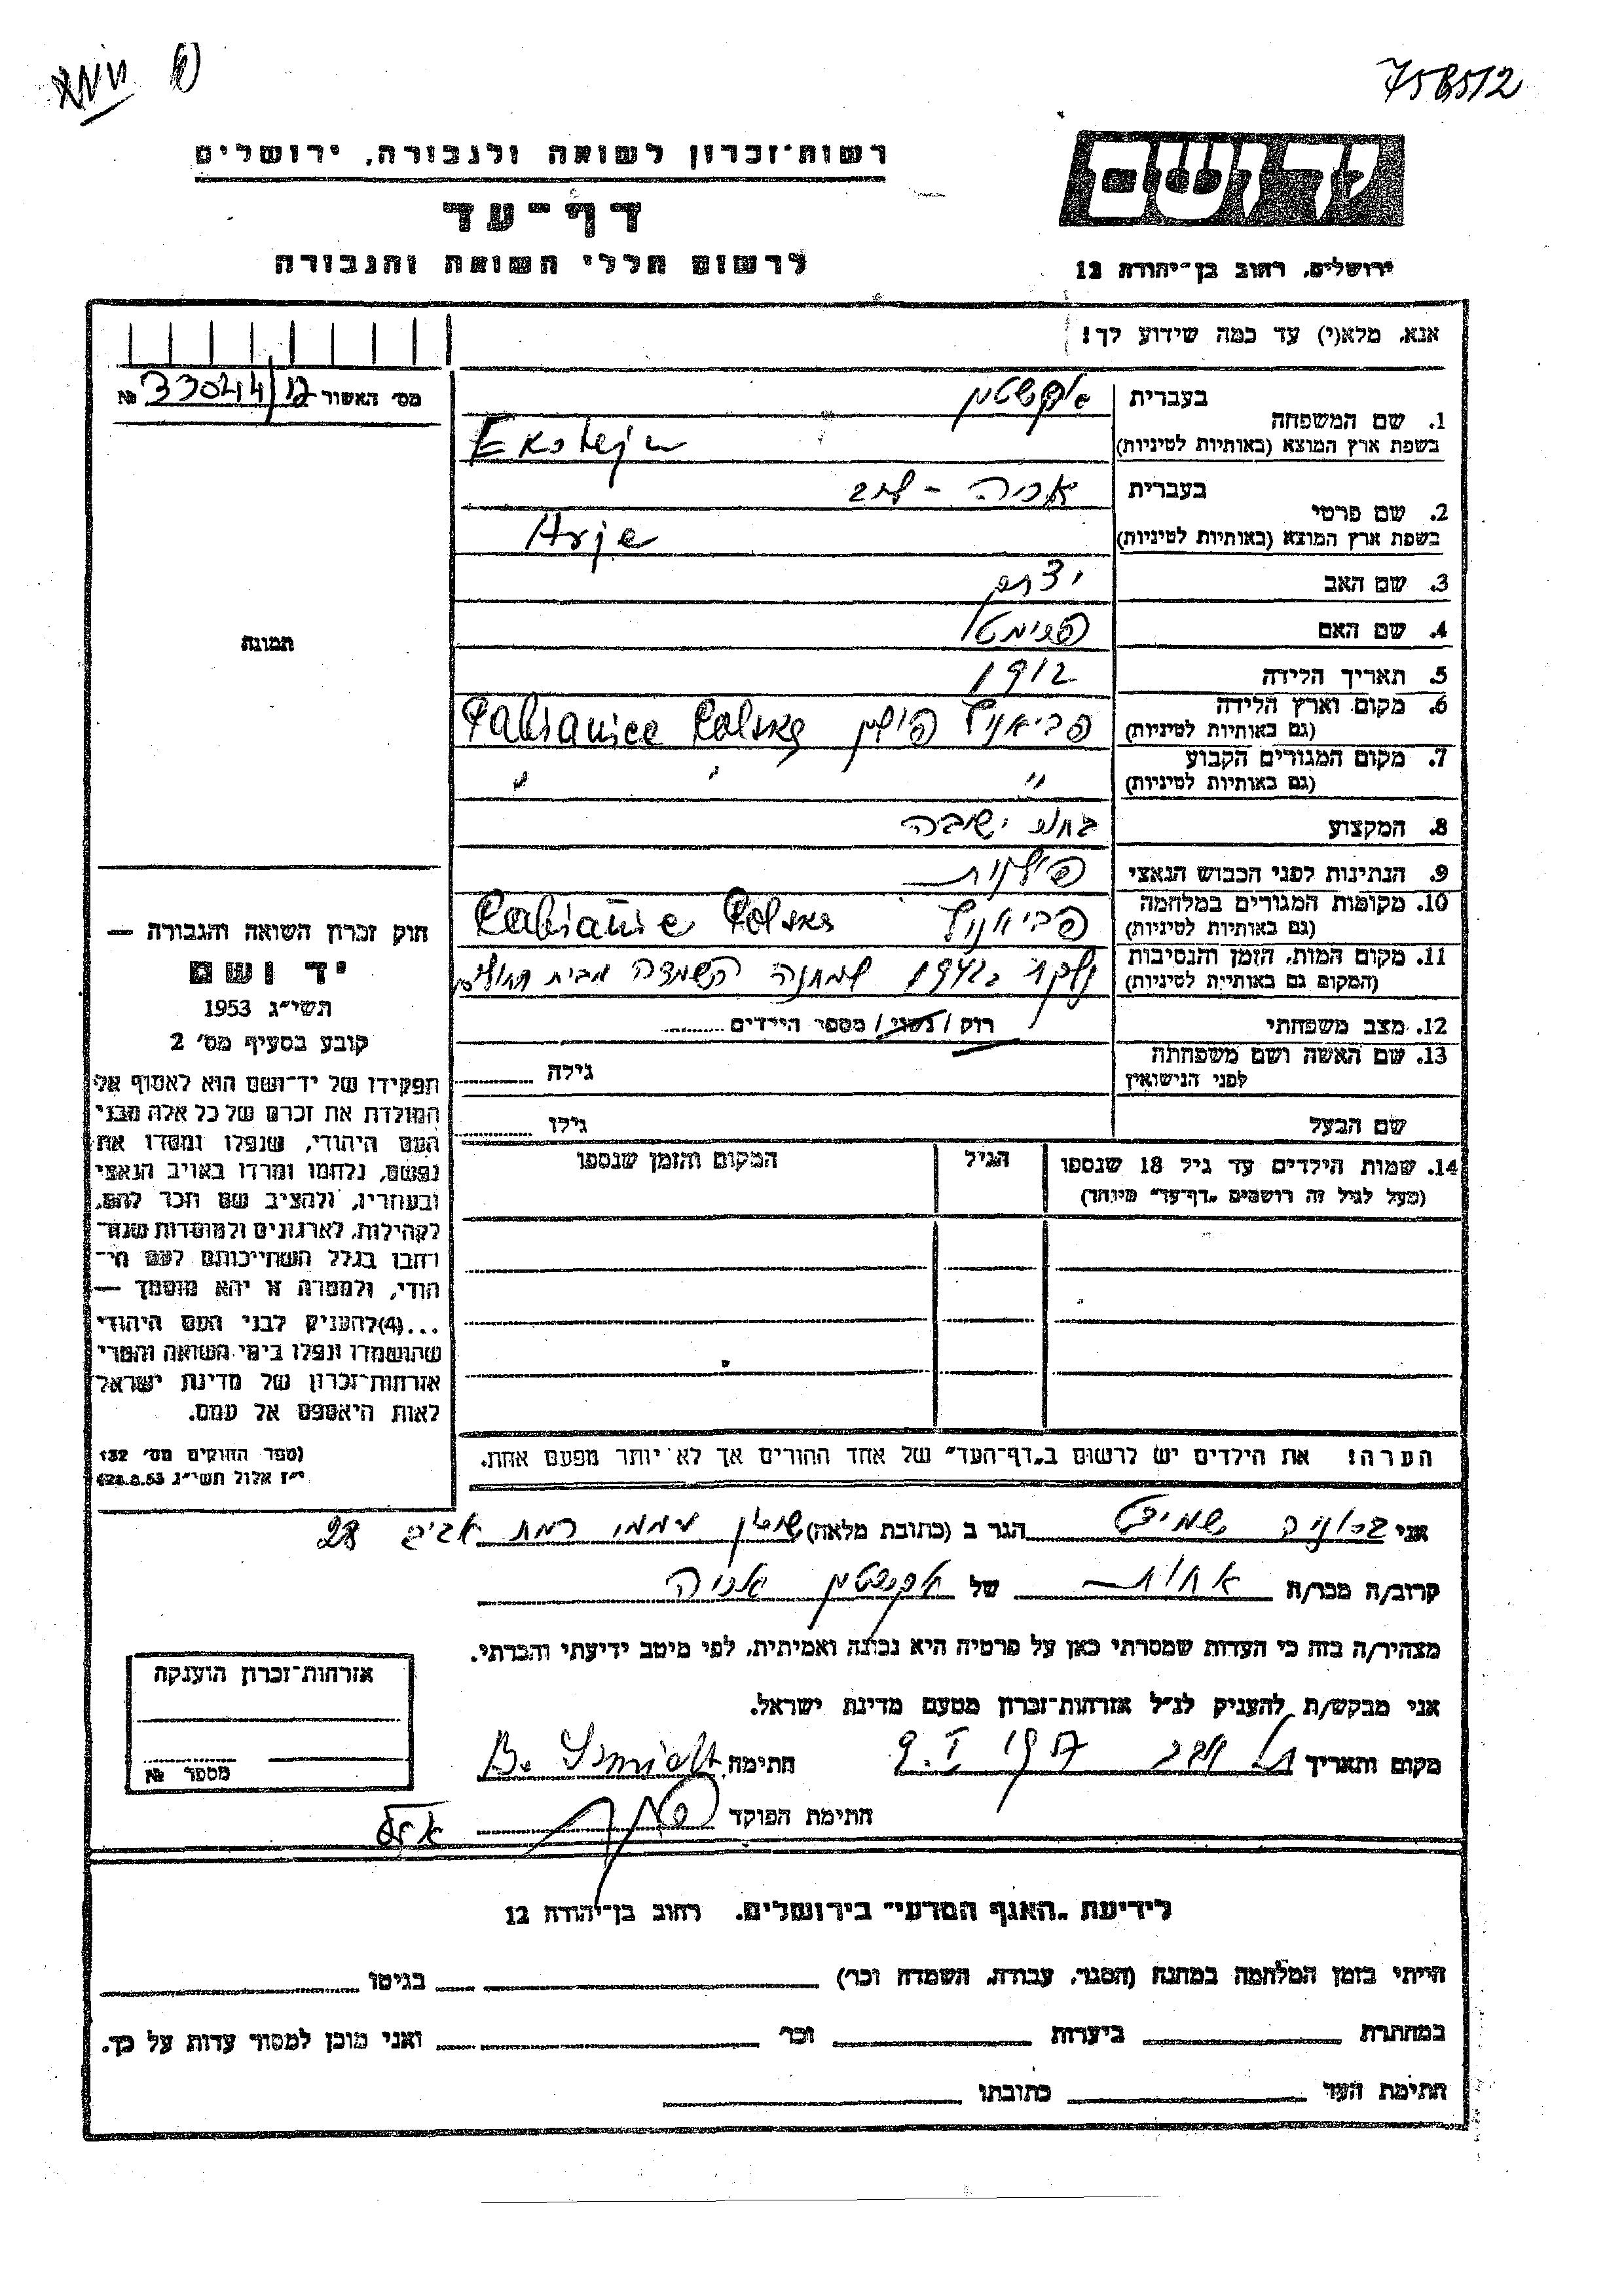 758512
רשות־זכרון לשואה ולגבורה, ירושלים
יד ושם
דף־עד
לרשום חללי השואה והגבורה
ירושלים, רחוב בן־יהודה 12
אנא, מלא(י) עד כמה שידוע לך!
מס׳ האשור № 33044/12
1. שם המשפחה
בעברית אקשטין
בשפת ארץ המוצא (באותיות לטיניות) Ekstejn
2. שם פרטי
בעברית אריה - ליב
בשפת ארץ המוצא (באותיות לטיניות) Arje
3. שם האב יצחק
4. שם האם
5. תאריך הלידה 1912
6. מקום וארץ הלידה (גם באותיות לטיניות) פביאניץ פולין Pabianice Polska
7. מקום המגורים הקבוע (גם באותיות לטיניות) " " "
8. המקצוע בחור ישיבה
9. הנתינות לפני הכבוש הנאצי פולנית
10. מקומות המגורים במלחמה (גם באותיות לטיניות) פביאניץ Pabianice Polska
11. מקום המות, הזמן והנסיבות (המקום גם באותיית לטיניות) נלקח ב 1942 למחנה השמדה מבית החולים
12. מצב משפחתי רוק / נשוי / מספר הילדים
13. שם האשה ושם משפחתה לפני הנישואין גילה
שם הבעל גילו
14. שמות הילדים עד גיל 18 שנספו (מעל לגיל זה רושמים „דף־עד" מיוחד) הגיל המקום והזמן שנספו
הערה! את הילדים יש לרשום ב„דף־העד" של אחד ההורים אך לא יותר מפעם אחת.
תמונה
חוק זכרון השואה והגבורה —
יד ושם
תשי״ג 1953
קובע בסעיף מס׳ 2
תפקידו של יד־ושם הוא לאסוף אל
המולדת את זכרם של כל אלה מבני
העם היהודי, שנפלו ומסרו את
נפשם, נלחמו ומרדו באויב הנאצי
ובעוזריו, ולהציב שם וזכר להם,
לקהילות, לארגונים ולמוסדות שנח־
רחבו בגלל השתייכותם לעם הי־
הודי, ולמטרה זו יהא מוסמך —
...(4) להעניק לבני העם היהודי
שהושמדו ונפלו בימי השואה והמרי
אזרחות־זכרון של מדינת ישראל
לאות היאספם אל עמם.
(ספר החוקים מס׳ 132
י״ז אלול תשי״ג 28.8.53)
אני ברוניה שמידט הגר ב (כתובת מלאה) שיכון עממי רמת אביב 28
קרוב/ה מכר/ה אחות של אקשטין אריה
מצהיר/ה בזה כי העדות שמסרתי כאן על פרטיה היא נכונה ואמיתית, לפי מיטב ידיעתי והכרתי.
אני מבקש/ת להעניק לנ״ל אזרחות־זכרון מטעם מדינת ישראל.
מקום ותאריך תל אביב 9.I 1957 חתימה B. Szmidt
חתימת הפוקד
אזרחות־זכרון הוענקה
מספר №
לידיעת „האגף המדעי" בירושלים. רחוב בן־יהודה 12
הייתי בזמן המלחמה במחנה (הסגר, עבודה, השמדה וכר׳) בגיטו
במחתרת ביערות וכר׳ ואני מוכן למסור עדות על כך.
חתימת העד כתובתו